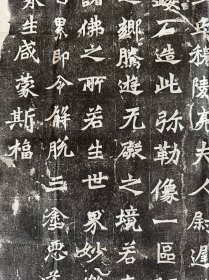 丘穆陵亮夫人尉遲
石造此弥勒像一區
之鄉騰遊无礙之境若
諸佛之所若生世界妙
累即令解脱三塗惡道
生咸蒙斯福